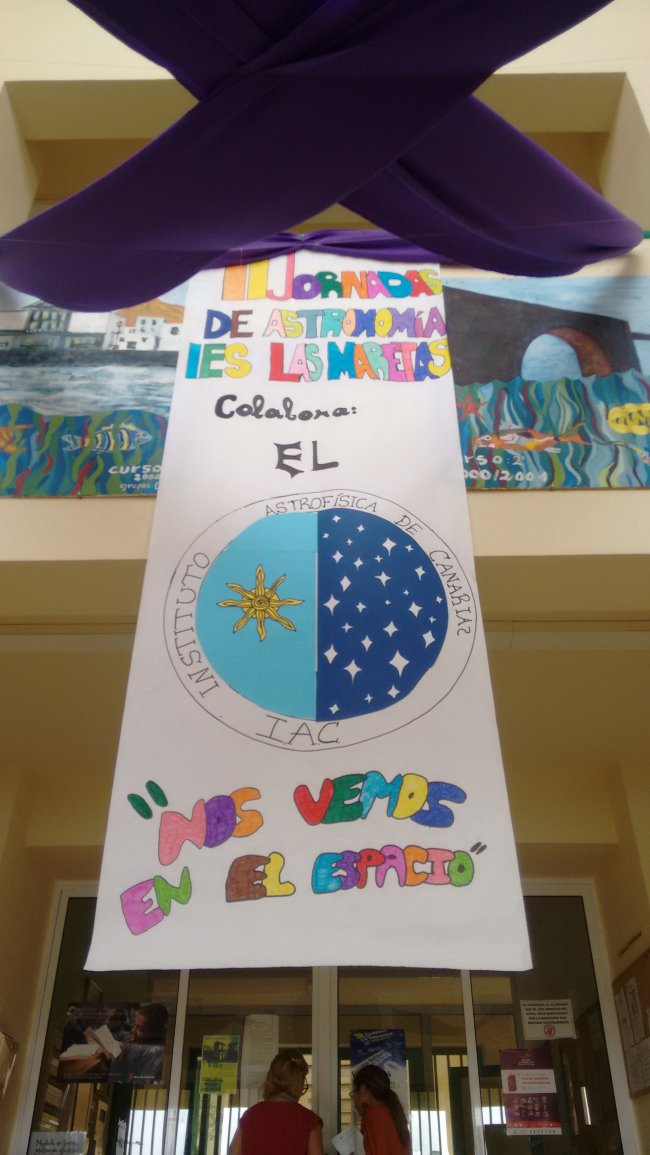 II JORNADAS
DE ASTRONOMÍA
IES LAS MARETAS
Colabora:
EL
INSTITUTO ASTROFÍSICA DE CANARIAS
I.A.C.
"NOS VEMOS
EN EL ESPACIO"
CURSO
2000
grupos
RSO: 2º
000/2001